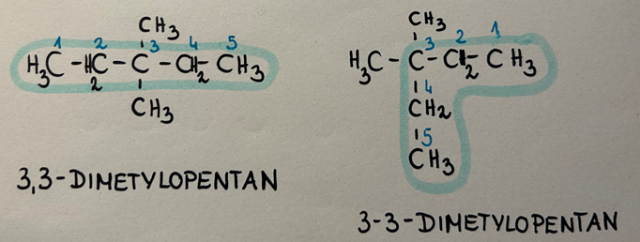 CH3
1 2 3 4 5
H3C - H2C - C - CH2 - CH3
CH3
3,3-DIMETYLOPENTAN
CH3
3 2 1
H3C - C - CH2 - CH3
4
CH2
5
CH3
3-3-DIMETYLOPENTAN